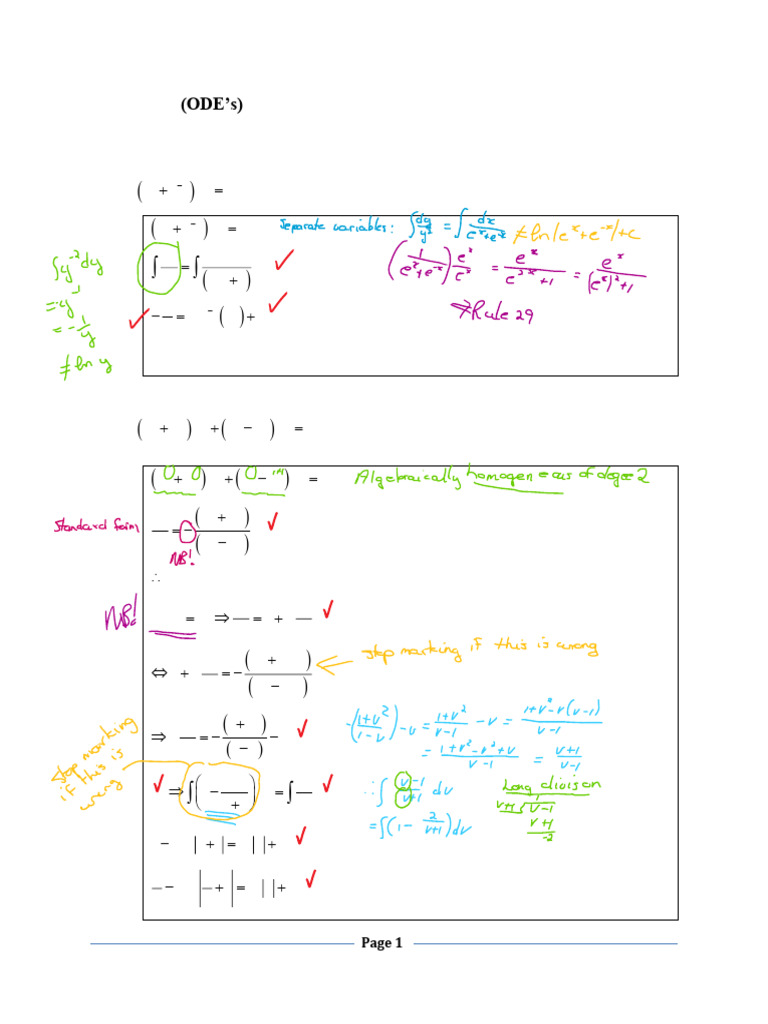 (ODE's)
( + ⁻ ) =
( + ⁻ ) = Separate variables: ∫ dy/y² = ∫ dx/(eˣ+e⁻ˣ) ≠ ln|eˣ+e⁻ˣ|+c
∫y⁻²dy ∫ — = ∫ —/( + ) ✓ (1/(eˣ+e⁻ˣ)) eˣ/eˣ = eˣ/(e²ˣ+1) = eˣ/((eˣ)²+1)
= -y⁻¹
✓ − — = ⁻ ( ) + ✓ ⇒ Rule 29
= -1/y
≠ ln y
( + ) + ( − ) =
( + ) + ( − ) = Algebraically homogeneous of degree 2
Standard form — = − ( + )/( − ) ✓
NB!
∴
NB! = ⇒ — = + — ✓
⇔ + — = − ( + )/( − ) Stop marking if this is wrong
⇒ — = − ( + )/( − ) − ✓ -(1+v²)/(1-v) - v = (1+v²)/(v-1) - v = (1+v²-v(v-1))/(v-1)
= (1+v²-v²+v)/(v-1) = (v+1)/(v-1)
Stop marking if this is wrong
✓ ⇒ ∫( − —/ + ) = ∫ — ✓ ∴ ∫ (v-1)/(v+1) dv Long division
v+1 √ v-1
= ∫(1 - 2/(v+1))dv v+1
-2
− | + | = | | + ✓
— − | — + | = | | + ✓
Page 1